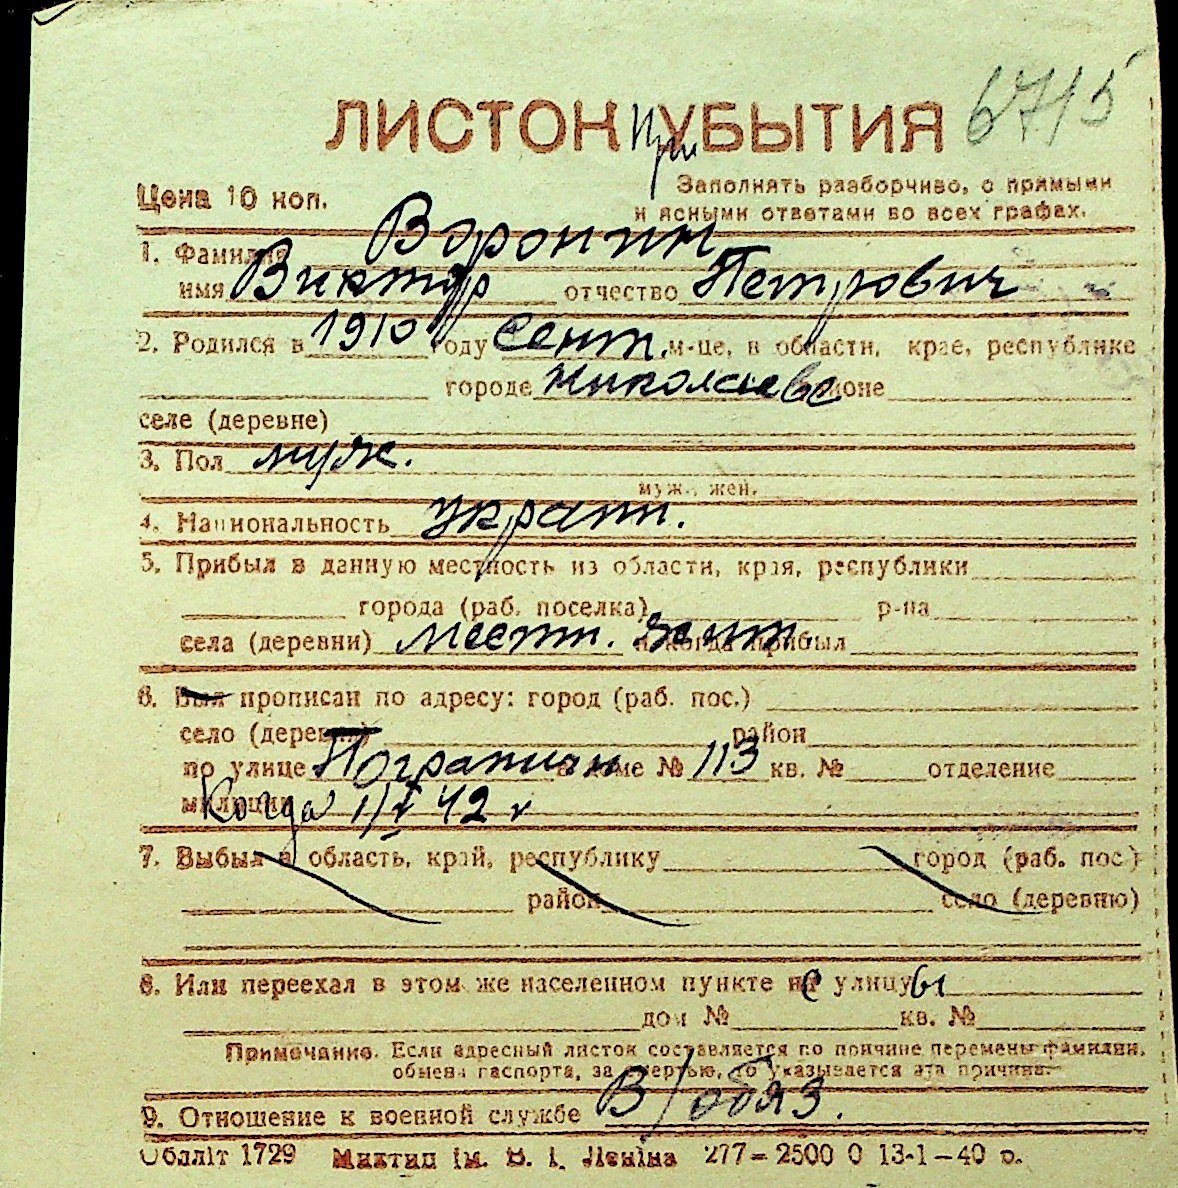 ЛИСТОК При УБЫТИЯ 6715
Цена 10 коп.
Заполнять разборчиво, с прямыми
и ясными ответами во всех графах.
1. Фамилия Воронин
имя Виктор отчество Петрович
2. Родился в 1910 году сент. м-це, в области, крае, республике
городе Николаеве районе
селе (деревне)
3. Пол муж.
муж., жен.
4. Национальность украин.
5. Прибыл в данную местность из области, края, республики
города (раб. поселка) р-на
села (деревни) местн. жит. и когда прибыл
6. Был прописан по адресу: город (раб. пос.)
село (деревня) район
по улице Пограничн в доме № 113 кв. № отделение
милиции Когда 1/V 42 г
7. Выбыл в область, край, республику город (раб. пос.)
район село (деревню)
8. Или переехал в этом же населенном пункте на с улицу ы
дом № кв. №
Примечание. Если адресный листок составляется по причине перемены фамилии,
обмена паспорта, за смертью, то указывается эта причина.
9. Отношение к военной службе В/обяз.
Облліт 1729 Миктип ім. В. І. Леніна 277—2500 0 13-1—40 р.